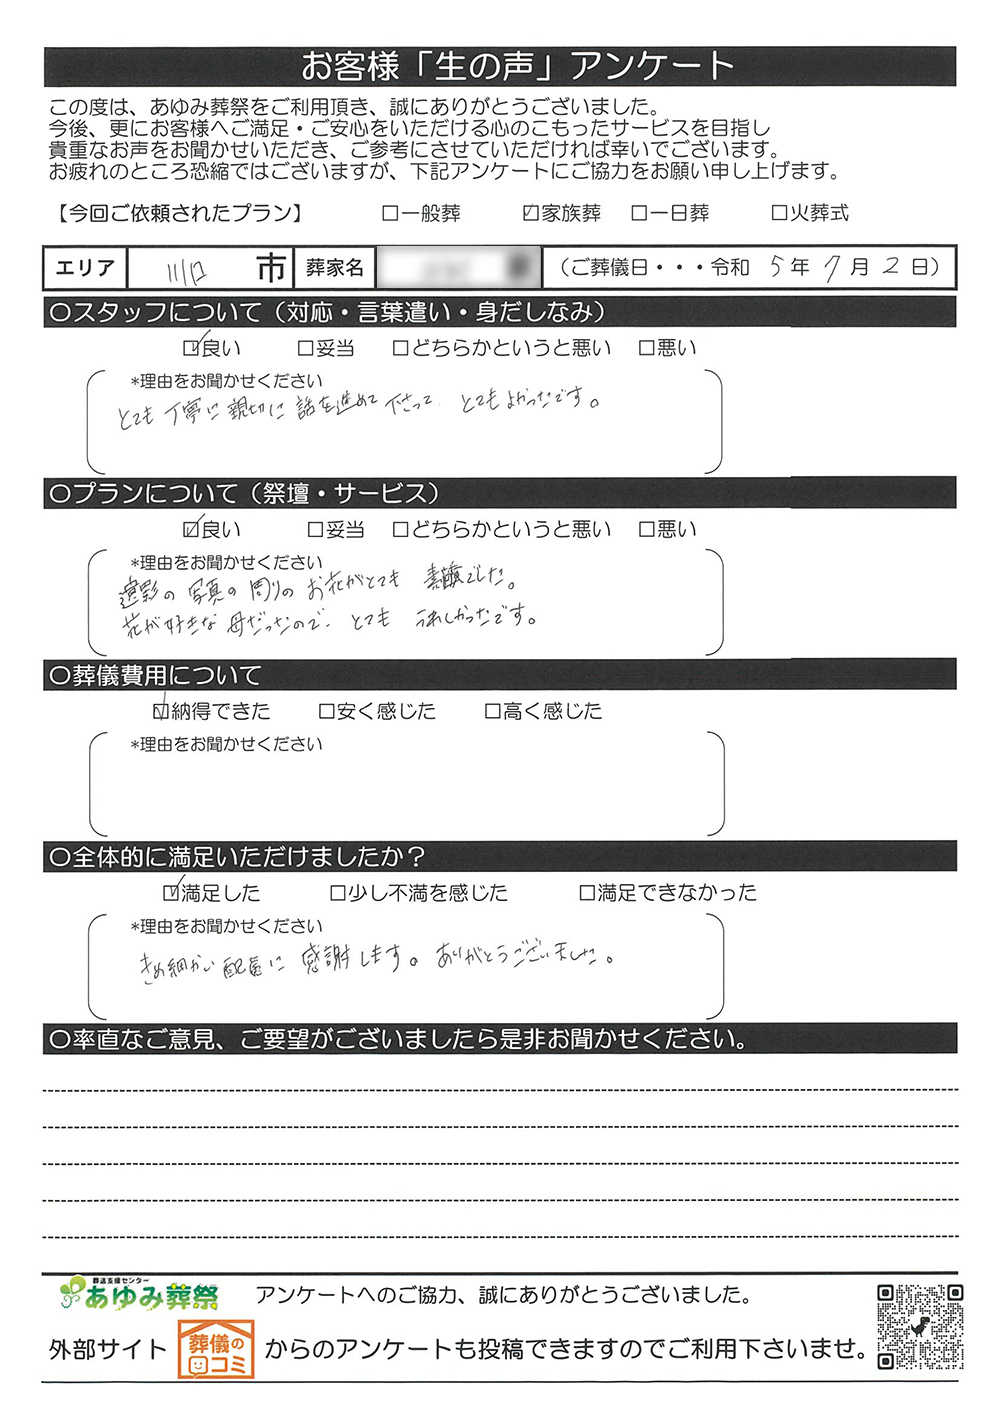 お客様「生の声」アンケート
この度は、あゆみ葬祭をご利用頂き、誠にありがとうございました。
今後、更にお客様へご満足・ご安心をいただける心のこもったサービスを目指し
貴重なお声をお聞かせいただき、ご参考にさせていただければ幸いでございます。
お疲れのところ恐縮ではございますが、下記アンケートにご協力をお願い申し上げます。
【今回ご依頼されたプラン】 □一般葬 ☑家族葬 □一日葬 □火葬式
エリア 川口 市 葬家名 （ご葬儀日・・・令和 5 年 7 月 2 日）
〇スタッフについて（対応・言葉遣い・身だしなみ）
☑良い □妥当 □どちらかというと悪い □悪い
*理由をお聞かせください
とても丁寧に親切に話を進めて下さって、とてもよかったです。
〇プランについて（祭壇・サービス）
☑良い □妥当 □どちらかというと悪い □悪い
*理由をお聞かせください
遺影の写真の周りのお花がとても素敵でした。
花が好きな母だったので、とてもうれしかったです。
〇葬儀費用について
☑納得できた □安く感じた □高く感じた
*理由をお聞かせください
〇全体的に満足いただけましたか？
☑満足した □少し不満を感じた □満足できなかった
*理由をお聞かせください
きめ細かい配慮に感謝します。ありがとうございました。
〇率直なご意見、ご要望がございましたら是非お聞かせください。
葬送支援センター
あゆみ葬祭 アンケートへのご協力、誠にありがとうございました。
外部サイト 葬儀の口コミ からのアンケートも投稿できますのでご利用下さいませ。